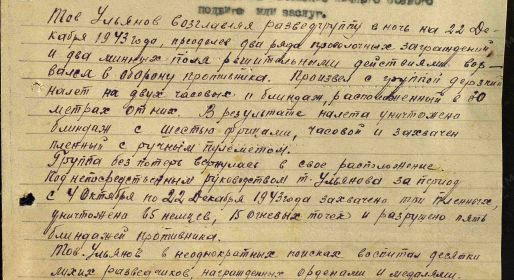 подвига или заслуг.
Тов Ульянов возглавляя разведгруппу в ночь на 22 Де-
кабря 1943 года, преодолев два ряда проволочных заграждений
и два минных поля решительными действиями вор-
вался в оборону противника. Произвел с группой дерзкий
налет на двух часовых и блиндаж, расположенный в 60
метрах от них. В результате налета уничтожено
блиндаж с шестью фрицами, часовой и захвачен
пленный с ручным пулеметом.
Группа без потерь вернулась в свое расположение.
Под непосредственным руководством т. Ульянова за период
с 4 Октября по 22 Декабря 1943 года захвачено три пленных,
уничтожено 65 немцев, 15 огневых точек и разрушено пять
блиндажей противника.
Тов. Ульянов в неоднократных поисках воспитал десятки
лихих разведчиков, награжденных орденами и медалями.